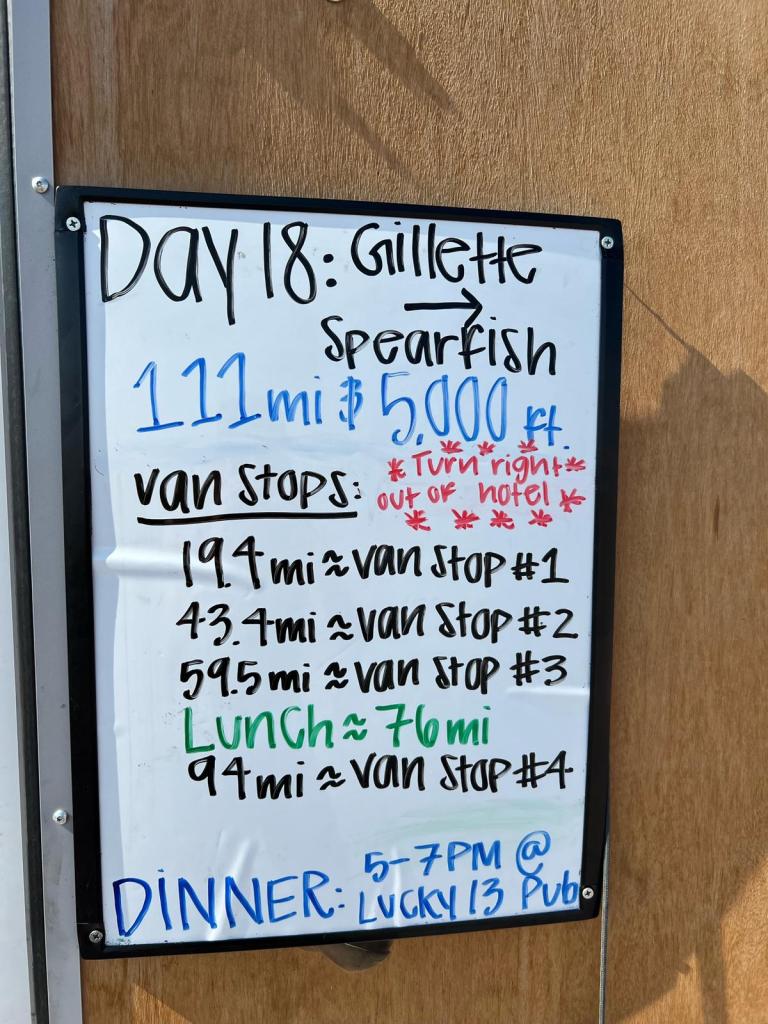 Day 18: Gillette
→
Spearfish
111mi & 5,000 ft.
Van Stops:
*Turn right*
out of hotel *
19.4mi ≈ Van Stop #1
43.4mi ≈ Van Stop #2
59.5mi ≈ Van Stop #3
Lunch ≈ 76mi
94mi ≈ Van Stop #4
DINNER: 5-7PM @
Lucky 13 Pub